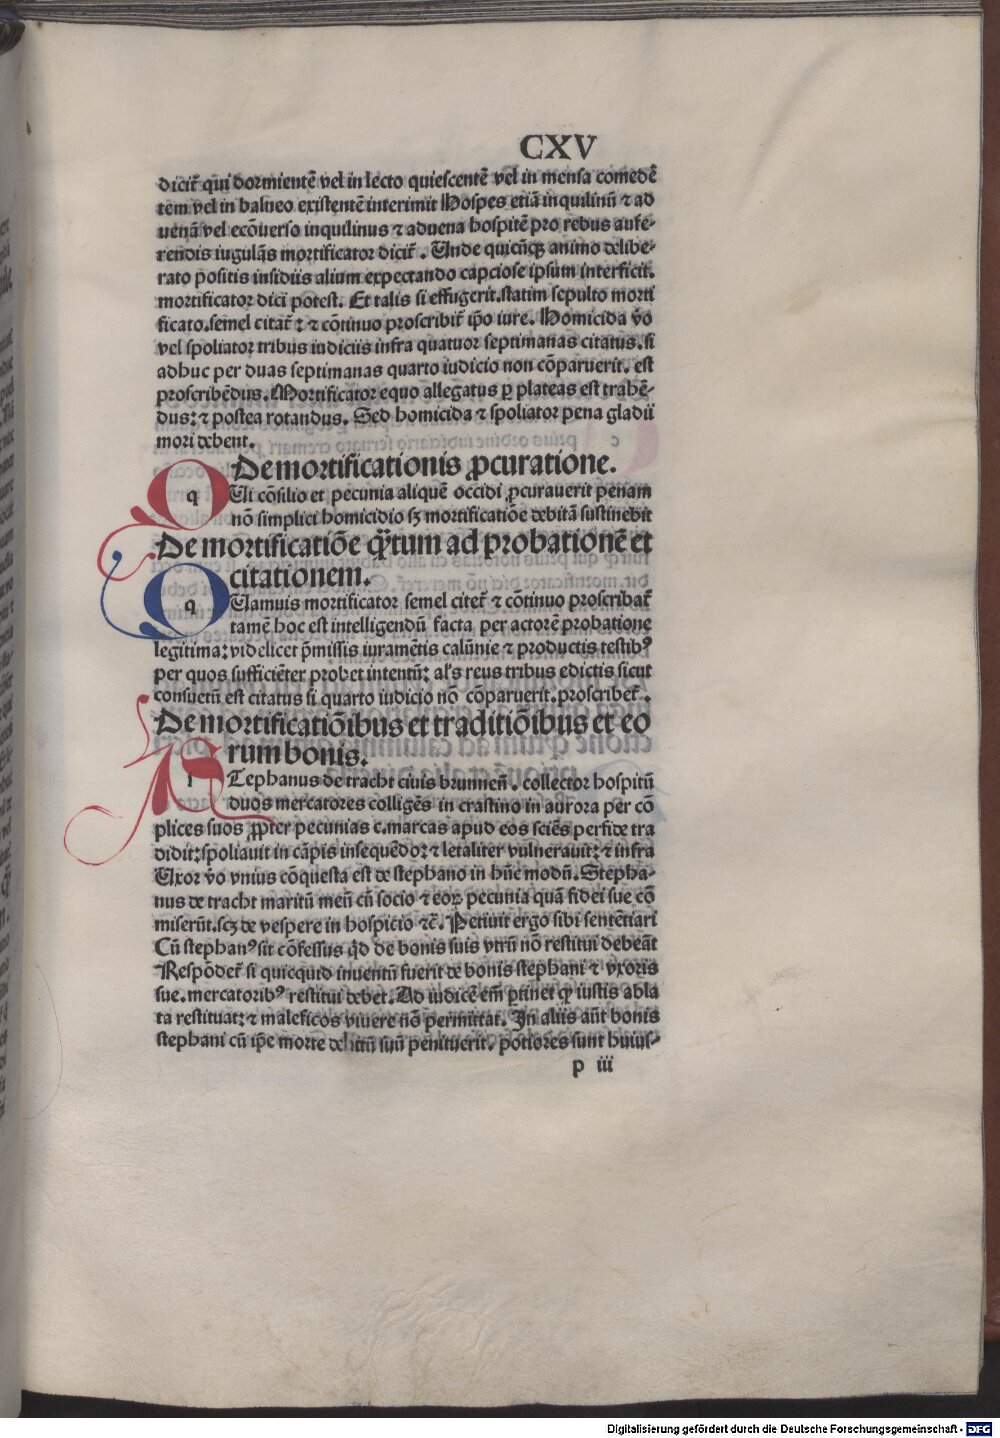 CXV
dicit᷑ qui dormientē vel in lecto quiescentē vel in mensa comedē
tem vel in balneo existentē interimit Hospes etiā inquilinū ⁊ ad
uenā vel ecōuerso inquilinus ⁊ aduena hospitē pro rebus aufe-
rendis iugulās mortificator dicit᷑. Unde quicūqꝫ animo delibe-
rato positis insidiis alium expectando capciose ipsum interficit.
mortificator dici potest. Et talis si effugerit. statim sepulto morti
ficato. semel citat᷑: ⁊ cōtinuo proscribit᷑ ip̄o iure. Homicida v̄o
vel spoliator tribus iudiciis infra quatuor septimanas citatus. si
adhuc per duas septimanas quarto iudicio non cōparuerit. est
proscribēdus. Mortificator equo allegatus ꝑ plateas est trahē-
dus: ⁊ postea rotandus. Sed homicida ⁊ spoliator pena gladii
mori debent.
De mortificationis ꝓcuratione.
q Ui cōsilio et pecunia aliquē occidi ꝓcurauerit penam
nō simplici homicidio sꝫ mortificatiōe debitā sustinebit
De mortificatiōe q̄tum ad probationē et
citationem.
q Uamuis mortificator semel citet᷑ ⁊ cōtinuo proscribat᷑
tamē hoc est intelligendū facta per actorē probatione
legitima: videlicet p̄missis iuramētis calūnie ⁊ productis testibꝰ
per quos sufficiēter probet intentū: al's reus tribus edictis sicut
consuetū est citatus si quarto iudicio nō cōparuerit. proscribet᷑.
De mortificatiōibus et traditiōibus et eo
rum bonis.
Tephanus de tracht ciuis brunnen̄. collector hospitū
duos mercatores colligēs in crastino in aurora per cō
plices suos ꝓpter pecunias c. marcas apud eos sciēs perfide tra
didit: spoliauit in cāpis insequēdo: ⁊ letaliter vulnerauit: ⁊ infra
Uxor v̄o vnius cōquesta est de stephano in hūc modū. Stepha-
nus de tracht maritū meū cū socio ⁊ eoꝝ pecunia quā fidei sue cō
miserūt. scꝫ de vespere in hospicio ⁊c̄. Petiuit ergo sibi sentētiari
Cū stephanꝰ sit cōfessus q̄d de bonis suis vtrū nō restitui debeāt
Respōdet᷑ si quicquid inuentū fuerit de bonis stephani ⁊ vxoris
sue. mercatoribꝰ restitui debet. Ad iudicē em̄ ꝑtinet qꝫ iustis abla
ta restituat: ⁊ maleficos viuere nō permittat. In aliis aūt bonis
stephani cū ip̄e morte debitū suū penituerit. potiores sunt huius-
p iii
Digitalisierung gefördert durch die Deutsche Forschungsgemeinschaft - DFG